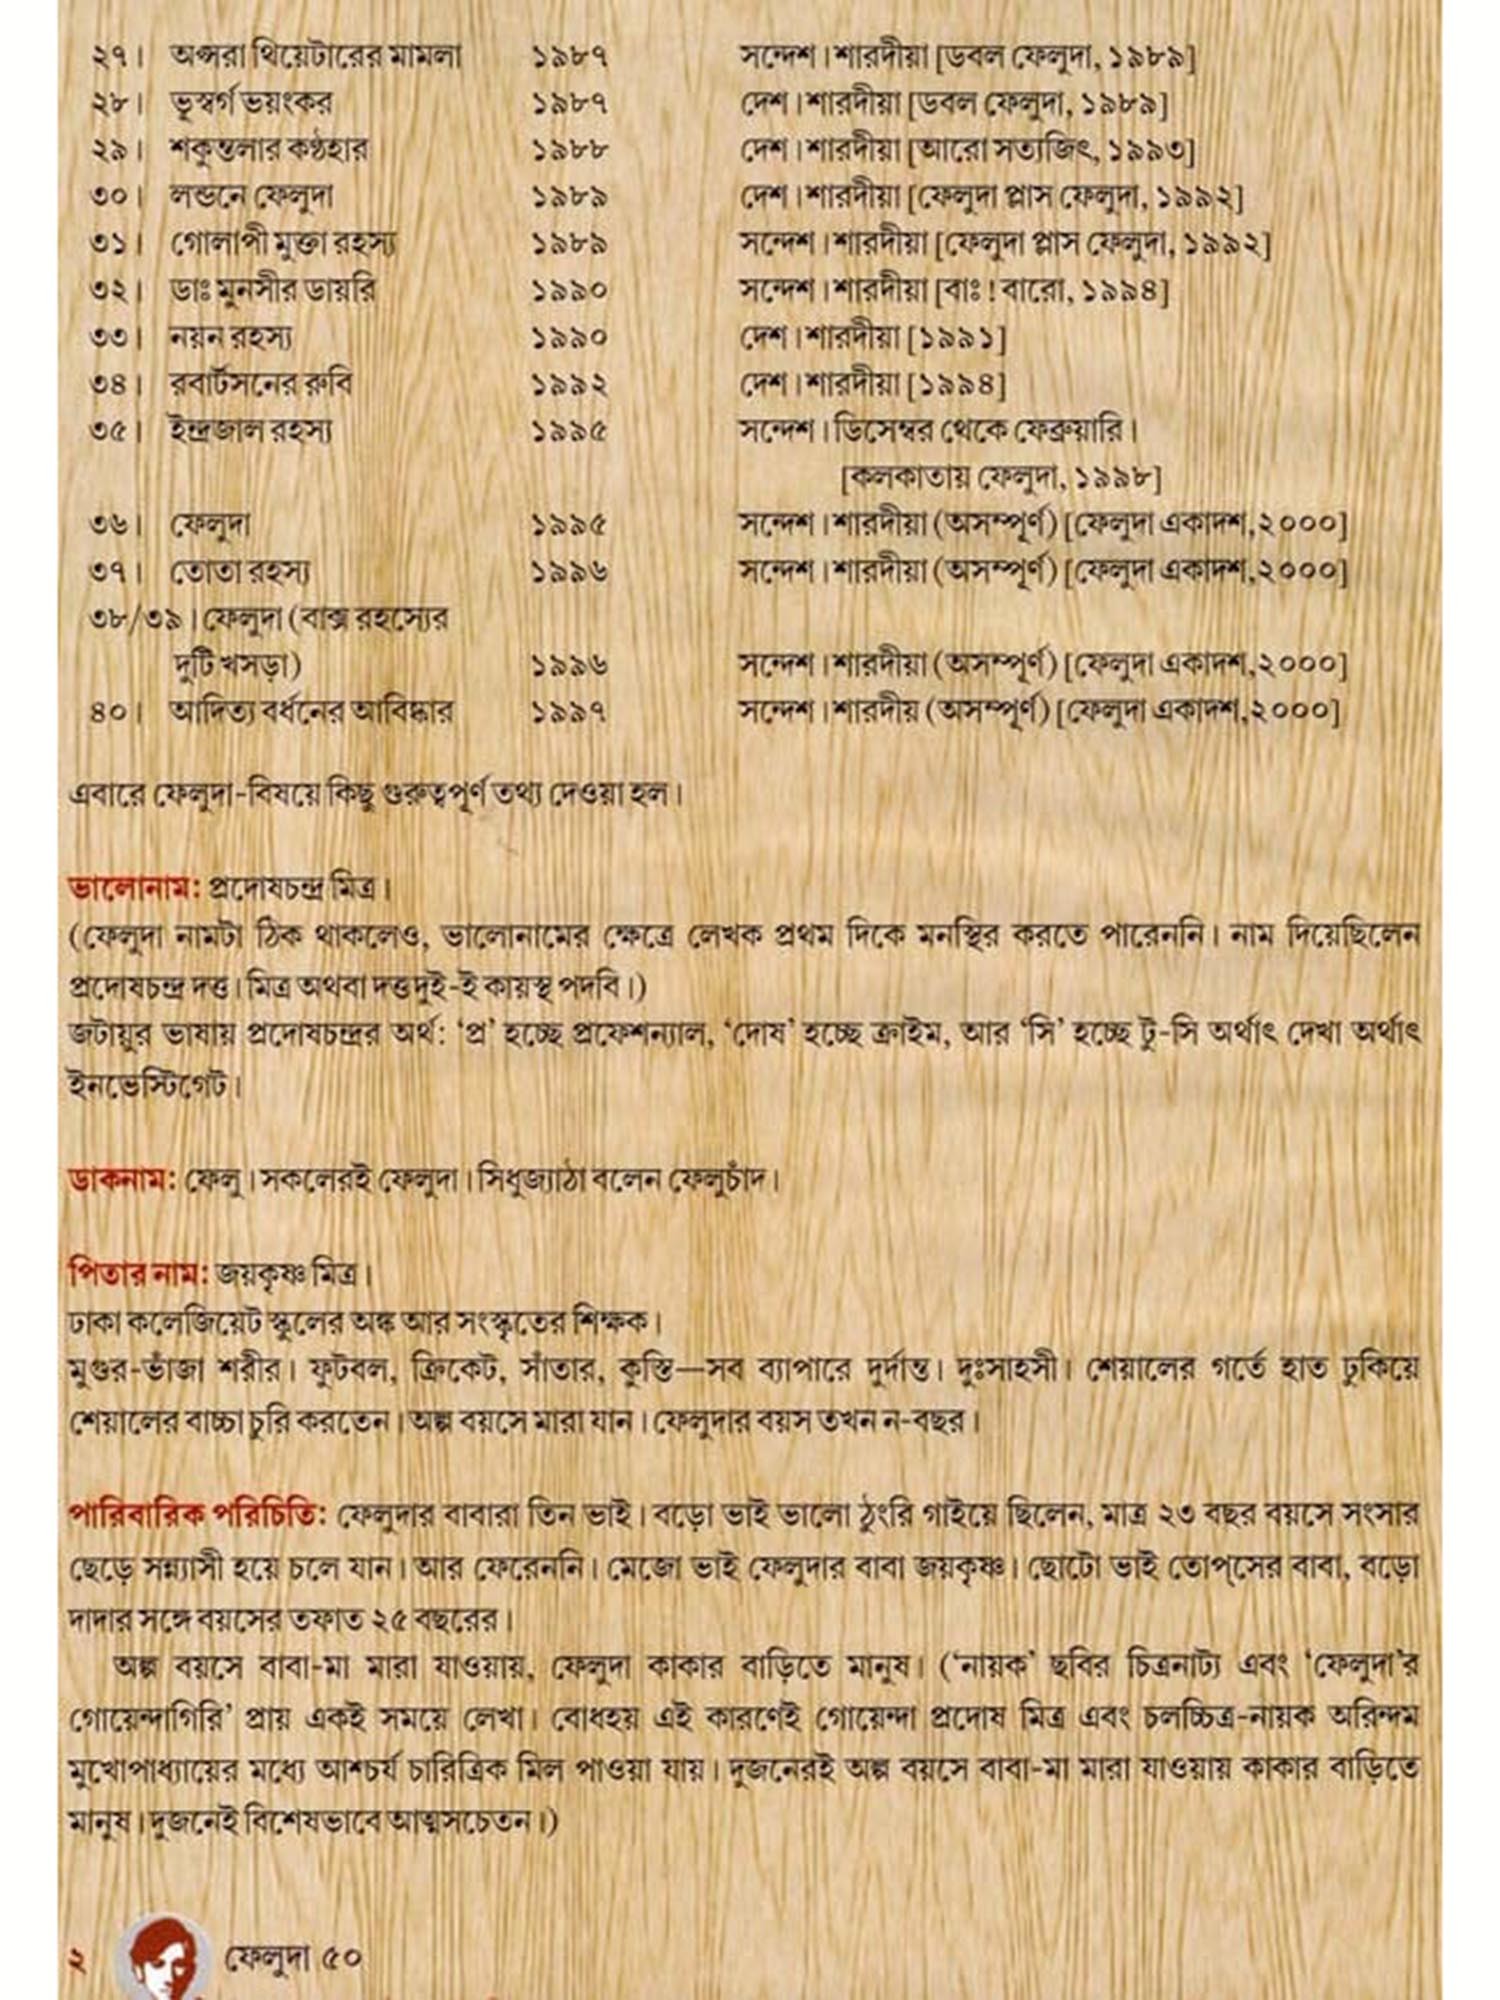 ২৭। অপ্সরা থিয়েটারের মামলা ১৯৮৭ সন্দেশ। শারদীয়া [ডবল ফেলুদা, ১৯৮৯]
২৮। ভূস্বর্গ ভয়ংকর ১৯৮৭ দেশ। শারদীয়া [ডবল ফেলুদা, ১৯৮৯]
২৯। শকুন্তলার কণ্ঠহার ১৯৮৮ দেশ। শারদীয়া [আরো সত্যজিৎ, ১৯৯৩]
৩০। লন্ডনে ফেলুদা ১৯৮৯ দেশ। শারদীয়া [ফেলুদা প্লাস ফেলুদা, ১৯৯২]
৩১। গোলাপী মুক্তা রহস্য ১৯৮৯ সন্দেশ। শারদীয়া [ফেলুদা প্লাস ফেলুদা, ১৯৯২]
৩২। ডাঃ মুনসীর ডায়রি ১৯৯০ সন্দেশ। শারদীয়া [বাঃ! বারো, ১৯৯৪]
৩৩। নয়ন রহস্য ১৯৯০ দেশ। শারদীয়া [১৯৯১]
৩৪। রবার্টসনের রুবি ১৯৯২ দেশ। শারদীয়া [১৯৯৪]
৩৫। ইন্দ্রজাল রহস্য ১৯৯৫ সন্দেশ। ডিসেম্বর থেকে ফেব্রুয়ারি।
[কলকাতায় ফেলুদা, ১৯৯৮]
৩৬। ফেলুদা ১৯৯৫ সন্দেশ। শারদীয়া (অসম্পূর্ণ) [ফেলুদা একাদশ,২০০০]
৩৭। তোতা রহস্য ১৯৯৬ সন্দেশ। শারদীয়া (অসম্পূর্ণ) [ফেলুদা একাদশ,২০০০]
৩৮/৩৯। ফেলুদা (বাক্স রহস্যের
দুটি খসড়া) ১৯৯৬ সন্দেশ। শারদীয়া (অসম্পূর্ণ) [ফেলুদা একাদশ,২০০০]
৪০। আদিত্য বর্ধনের আবিষ্কার ১৯৯৭ সন্দেশ। শারদীয় (অসম্পূর্ণ) [ফেলুদা একাদশ,২০০০]
এবারে ফেলুদা-বিষয়ে কিছু গুরুত্বপূর্ণ তথ্য দেওয়া হল।
ভালোনাম: প্রদোষচন্দ্র মিত্র।
(ফেলুদা নামটা ঠিক থাকলেও, ভালোনামের ক্ষেত্রে লেখক প্রথম দিকে মনস্থির করতে পারেননি। নাম দিয়েছিলেন
প্রদোষচন্দ্র দত্ত। মিত্র অথবা দত্ত দুই-ই কায়স্থ পদবি।)
জটায়ুর ভাষায় প্রদোষচন্দ্রর অর্থ: ‘প্র’ হচ্ছে প্রফেশন্যাল, ‘দোষ’ হচ্ছে ক্রাইম, আর ‘সি’ হচ্ছে টু-সি অর্থাৎ দেখা অর্থাৎ
ইনভেস্টিগেট।
ডাকনাম: ফেলু। সকলেরই ফেলুদা। সিধুজ্যাঠা বলেন ফেলুচাঁদ।
পিতার নাম: জয়কৃষ্ণ মিত্র।
ঢাকা কলেজিয়েট স্কুলের অঙ্ক আর সংস্কৃতের শিক্ষক।
মুগুর-ভাঁজা শরীর। ফুটবল, ক্রিকেট, সাঁতার, কুস্তি—সব ব্যাপারে দুর্দান্ত। দুঃসাহসী। শেয়ালের গর্তে হাত ঢুকিয়ে
শেয়ালের বাচ্চা চুরি করতেন। অল্প বয়সে মারা যান। ফেলুদার বয়স তখন ন-বছর।
পারিবারিক পরিচিতি: ফেলুদার বাবারা তিন ভাই। বড়ো ভাই ভালো ঠুংরি গাইয়ে ছিলেন, মাত্র ২৩ বছর বয়সে সংসার
ছেড়ে সন্ন্যাসী হয়ে চলে যান। আর ফেরেননি। মেজো ভাই ফেলুদার বাবা জয়কৃষ্ণ। ছোটো ভাই তোপ্‌সের বাবা, বড়ো
দাদার সঙ্গে বয়সের তফাত ২৫ বছরের।
অল্প বয়সে বাবা-মা মারা যাওয়ায়, ফেলুদা কাকার বাড়িতে মানুষ। (‘নায়ক’ ছবির চিত্রনাট্য এবং ‘ফেলুদা’র
গোয়েন্দাগিরি’ প্রায় একই সময়ে লেখা। বোধহয় এই কারণেই গোয়েন্দা প্রদোষ মিত্র এবং চলচ্চিত্র-নায়ক অরিন্দম
মুখোপাধ্যায়ের মধ্যে আশ্চর্য চারিত্রিক মিল পাওয়া যায়। দুজনেরই অল্প বয়সে বাবা-মা মারা যাওয়ায় কাকার বাড়িতে
মানুষ। দুজনেই বিশেষভাবে আত্মসচেতন।)
২ ফেলুদা ৫০